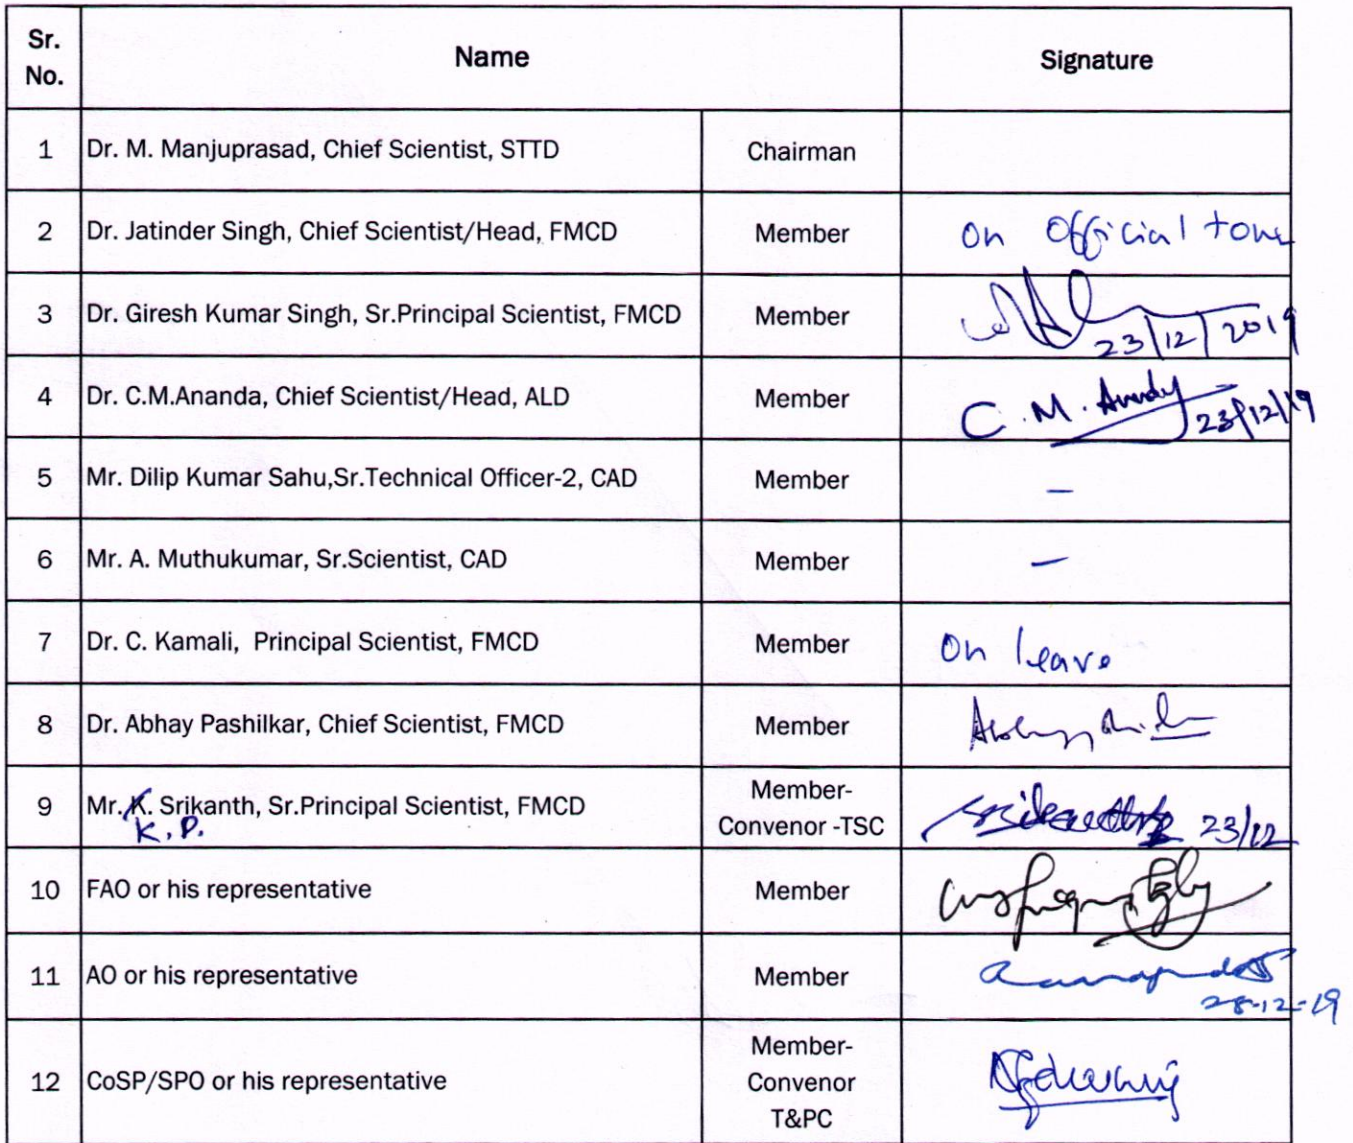 Sr. No. Name Signature
1 Dr. M. Manjuprasad, Chief Scientist, STTD Chairman
2 Dr. Jatinder Singh, Chief Scientist/Head, FMCD Member On Official tour
3 Dr. Giresh Kumar Singh, Sr.Principal Scientist, FMCD Member 23/12/2019
4 Dr. C.M.Ananda, Chief Scientist/Head, ALD Member C.M. 23/12/19
5 Mr. Dilip Kumar Sahu,Sr.Technical Officer-2, CAD Member –
6 Mr. A. Muthukumar, Sr.Scientist, CAD Member –
7 Dr. C. Kamali, Principal Scientist, FMCD Member On leave
8 Dr. Abhay Pashilkar, Chief Scientist, FMCD Member
9 Mr. K. Srikanth, Sr.Principal Scientist, FMCD Member-Convenor -TSC 23/12
K.P.
10 FAO or his representative Member
11 AO or his representative Member
12 CoSP/SPO or his representative Member-Convenor T&PC